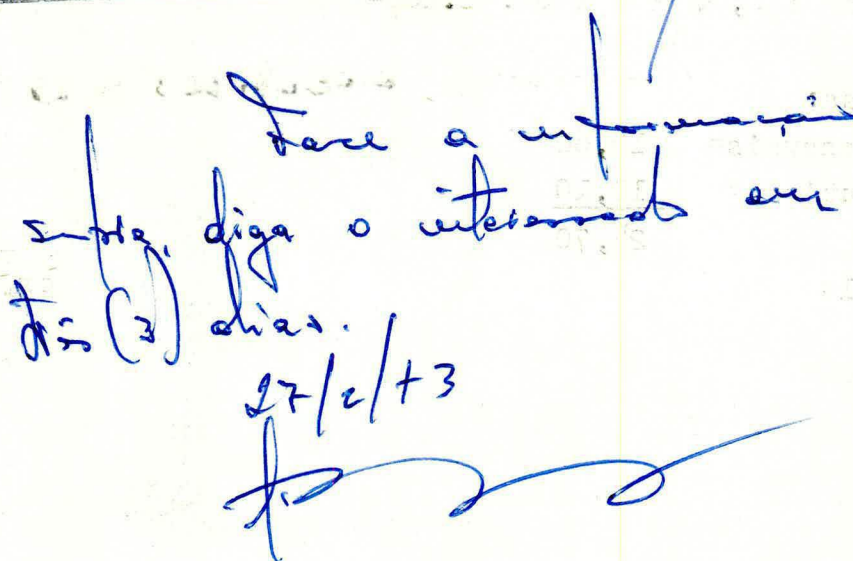 Face a informação
supra, diga o interessado em
três (3) dias.
27/2/73